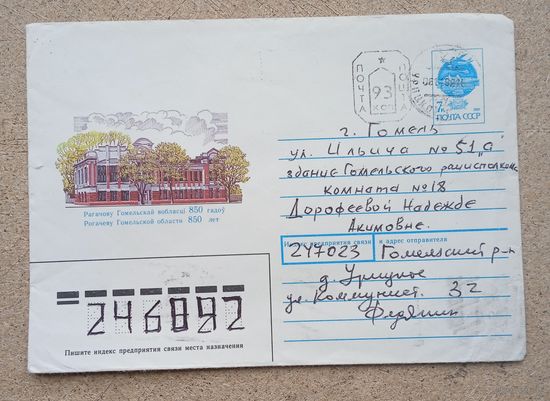 ПОЧТА
93
КОП
ПОЧТА
7к
ПОЧТА СССР
г. Гомель
ул. Ильича № 51 "а"
здание Гомельского райисполкома
комната № 18
Дорофеевой Надежде
Акимовне.
Рагачову Гомельскай вобласці 850 гадоў
Рогачеву Гомельской области 850 лет
Индекс предприятия связи и адрес отправителя
247023 Гомельский р-н
д. Урицкое
ул. Коммунист. 32
246092
Пишите индекс предприятия связи места назначения